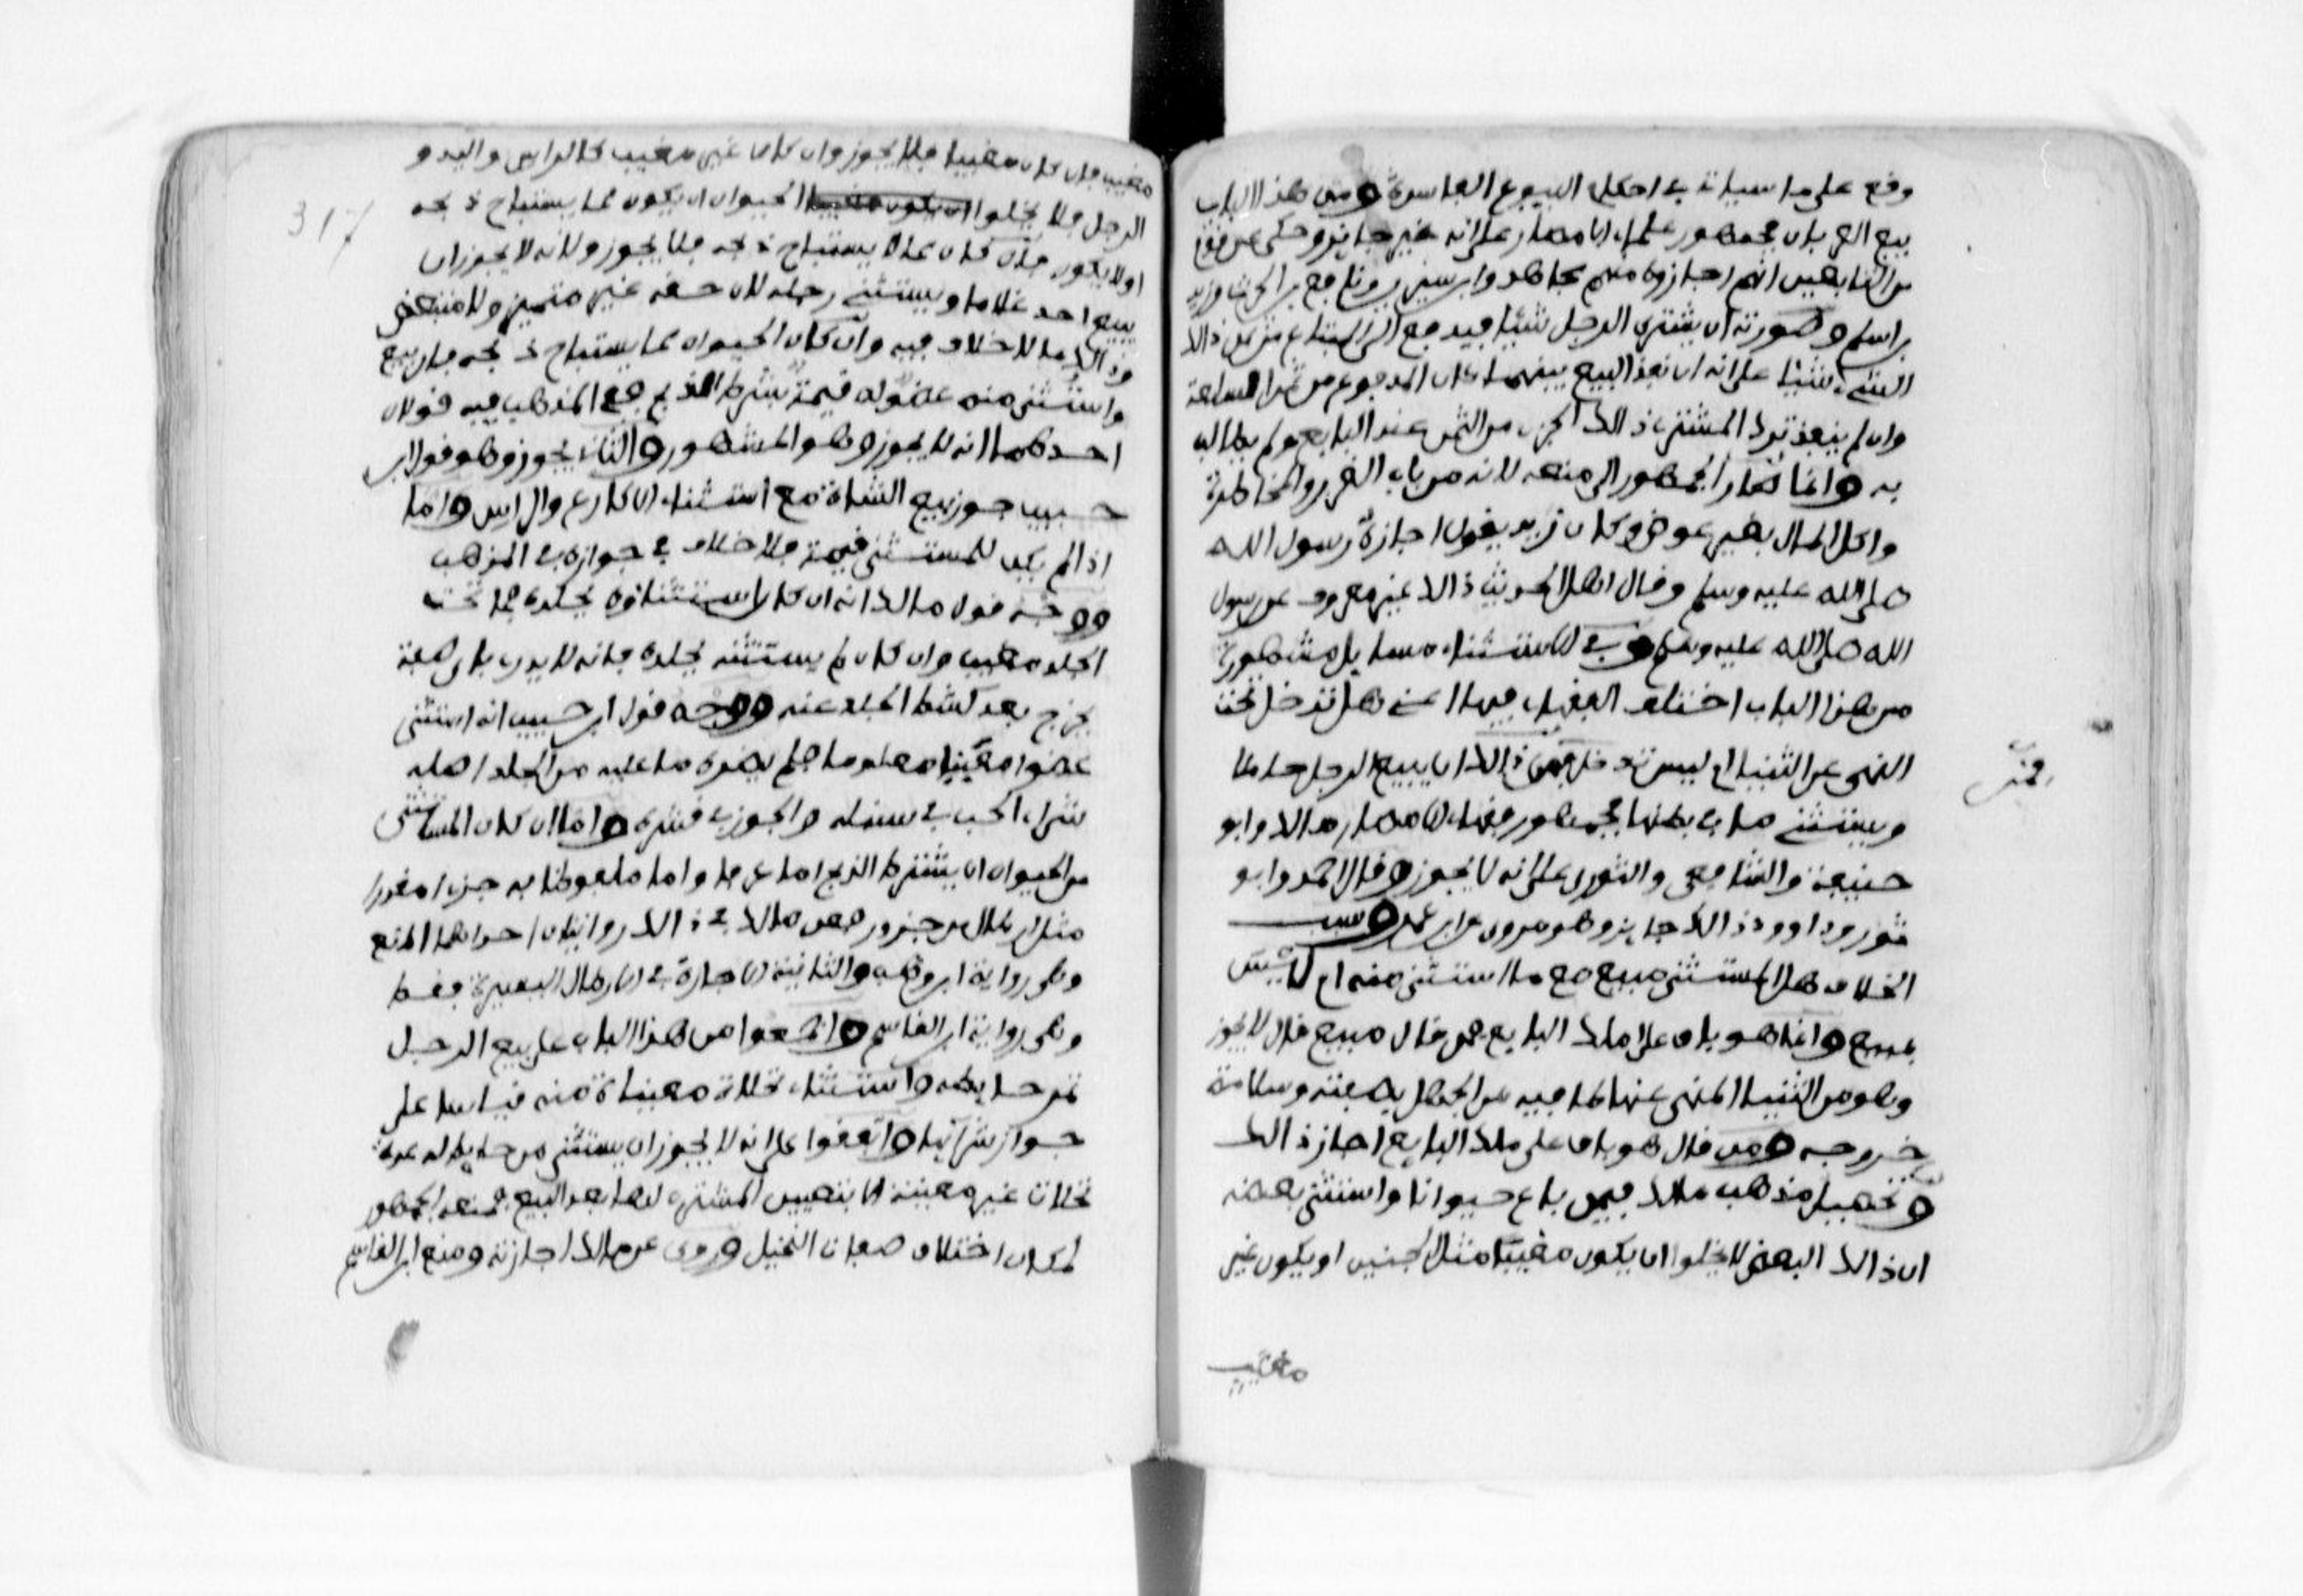 وقع على ما سياتي في احكام البيوع الفاسدة ومن هذا الباب
بيع العربان فجمهور علماء الامصار على انه غير جايز وحكى عن قوم
من التابعين انهم اجازوه منهم مجاهد وابن سيرين ونافع بن الحرث وزيد
بن اسلم وصورته ان يشتري الرجل شيئا فيدفع الى المبتاع من ثمن ذالك
الشيء شيئا على انه ان نفذ البيع بينهما كان المدفوع من ثمن السلعة
وان لم ينفذ ترك المشتري ذالك الجزء من الثمن عند البايع ولم يطالبه
به وانما صار الجمهور الى منعه لانه من باب الغرر والمخاطرة
واكل المال بغير عوض وكان زيد يقول اجازه رسول الله
صلى الله عليه وسلم وقال اهل الحديث ذالك غير معروف عن رسول
الله صلى الله عليه وسلم وفي الاستثناء مسايل مشهورة
من هذا الباب اختلف الفقهاء فيها اعني هل تدخل تحت
النهي عن الثنيا ام ليس تدخل فمن ذالك ان يبيع الرجل حاملا
ويستثني ما في بطنها فجمهور فقهاء الامصار مالك وابو
حنيفة والشافعي والثوري على انه لا يجوز وقال احمد وابو
ثور وداوود ذالك جايز وهو مروي عن ابن عمر وسبب
الخلاف هل المستثنى مبيع مع ما استثني منه ام ليس
بمبيع وانما هو باق على ملك البايع فمن قال مبيع قال لا يجوز
وهو من الثنيا المنهي عنها لما فيه من الجهل بصفته وسلامة
خروجه ومن قال هو باق على ملك البايع اجاز ذالك
وتحصيل مذهب مالك فيمن باع حيوانا واستثنى بعضه
ان ذالك البعض لا يخلوا ان يكون مغيبا مثل الجنين او يكون غير
مغيب
مغيب فان كان مغيبا فلا يجوز وان كان غير مغيب كالراس واليد و
317
الرجل فلا يخلوا ان يكون مغيبا الحيوان ان يكون مما يستباح ذبحه
او لا يكون فان كان مما لا يستباح ذبحه فلا يجوز ولانه لا يجوز ان
يبيع احد غلاما ويستثني رجله لان حقه غير متميز ولا متبعض
وذالك مما لا خلاف فيه وان كان الحيوان مما يستباح ذبحه فان بيع
واستثني منه عضو له قيمة بشرط الذبح ففي المذهب فيه قولان
احدهما انه لا يجوز وهو المشهور والثاني يجوز وهو قول ابن
حبيب جوز بيع الشاة مع استثناء الاكارع والراس واما
اذا لم يكن للمستثنى قيمة فلا خلاف في جوازه في المذهب
ووجه قول مالك انه ان كان استثناؤه بجلده فما تحت
الجلد مغيب وان كان لم يستثنه بجلده فانه لا يدري باي صفة
يخرج بعد كشط الجلد عنه ووجه قول ابن حبيب انه استثنى
عضوا معينا معلوما فلم يضره ما عليه من الجلد اصله
شراء الحب في سنبله والجوز في قشره واما ان كان المستثنى
من الحيوان ان يشترط الذبح اما عرفا واما ملفوظا به جزءا مقدرا
مثل ارطال من جزور فعن مالك في ذالك روايتان احداهما المنع
وهي رواية ابن وهب والثانية الاجازة في الارطال اليسيرة فقط
وهي رواية ابن القاسم واجمعوا من هذا الباب على بيع الرجل
ثمر حايطه واستثناء نخلات معينات منه قياسا على
جواز شرائها واتفقوا على انه لا يجوز ان يستثني من حايط له عدة
نخلات غير معينة الا بتعيين المشتري لها بعد البيع فمنعه الجمهور
لمكان اختلاف صفات النخيل وروي عن مالك اجازته ومنع ابن القاسم